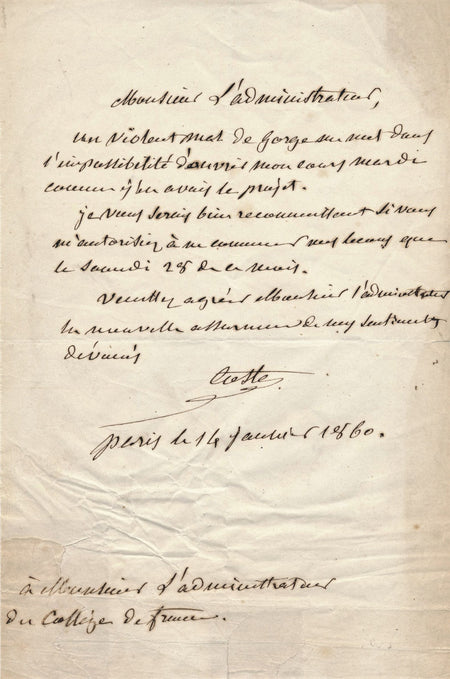 Monsieur L'administrateur,
un violent mal de gorge me met dans
l'impossibilité d'ouvrir mon cours mardi
comme j'en avais le projet.
je vous serais bien reconnaissant si vous
m'autorisiez à ne commencer mes leçons que
le samedi 28 de ce mois.
Veuillez agréer Monsieur l'administrateur
la nouvelle assurance de mes sentiments
dévoués
Coste
paris le 14 janvier 1860.
à Monsieur L'administrateur
du Collège de france.